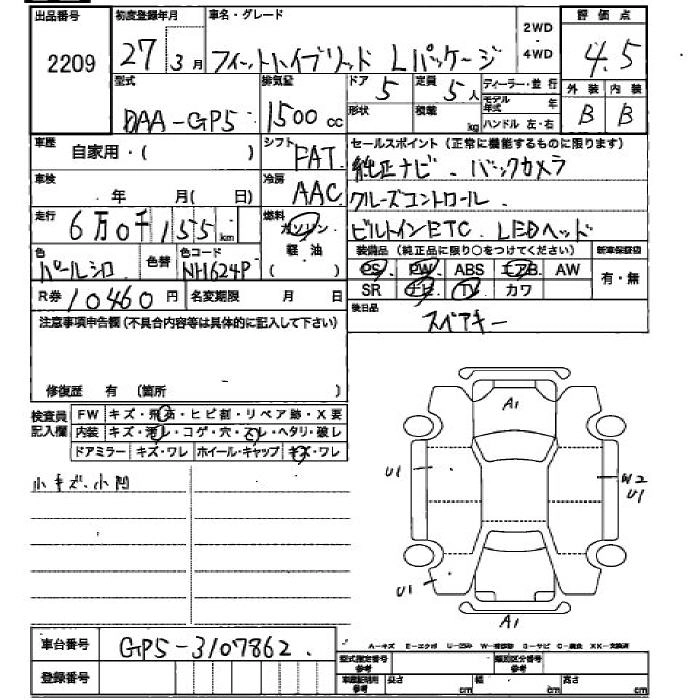 出品番号 初度登録年月 車名・グレード 2WD・4WD 評価点
2209 27 3月 フィットハイブリッド Lパッケージ 4.5
型式 排気量 ドア 定員 ディーラー・並行 外装 内装
DAA-GP5 1500cc 5 5人 モデル年式 年 B B
形状 積載 kg ハンドル 左・右
車歴 自家用・( ) シフト FAT セールスポイント(正常に機能するものに限ります)
純正ナビ、バックカメラ
車検 年 月( 日) 冷房 AAC クルーズコントロール
走行 6万0千155km 燃料 ガソリン 軽油 ( ) ビルトインETC. LEDヘッド
色 パールシロ 色替 色コード NH624P 装備品(純正品に限り○をつけてください) 新車保証書
PS PW ABS エアB AW 有・無
R券 10460円 名変期限 月 日 SR ナビ TV カワ
注意事項申告欄(不具合内容等は具体的に記入して下さい) 後日品 スペアキー
修復歴 有 (箇所 )
検査員記入欄 FW キズ・飛石・ヒビ割・リペア跡・X要
内装 キズ・汚レ・コゲ・穴・スレ・ヘタリ・破レ
ドアミラー キズ・ワレ ホイール・キャップ キズ・ワレ
小キズ、小凹
A1
U1 W2
U1
U1
A1
車台番号 GP5-3107862.
A-キズ E-エクボ U-凹み W-補修跡 S-サビ C-腐食 XX-交換済
登録番号 型式指定番号参考 類別区分番号参考
車庫証明用参考 長さ cm 幅 cm 高さ cm